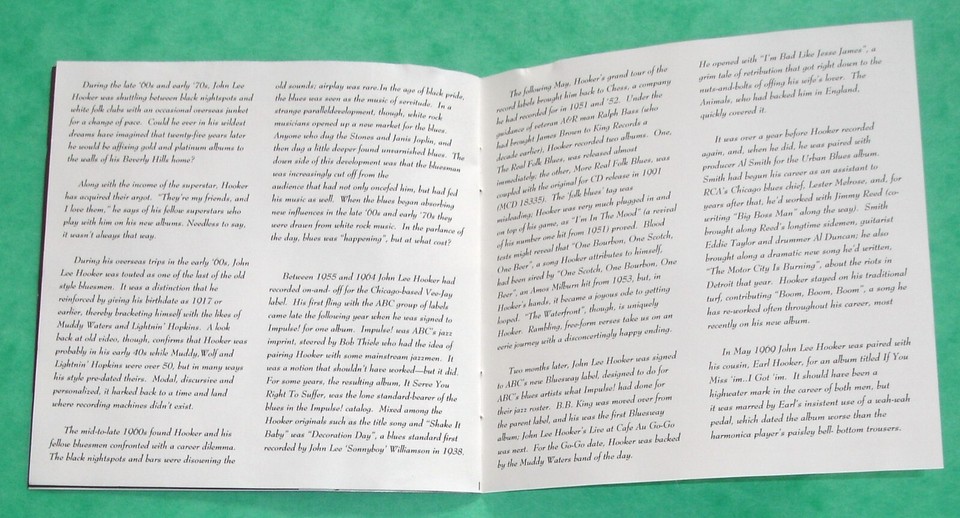 During the late '60s and early '70s, John Lee
Hooker was shuttling between black nightspots and
white folk clubs with an occasional overseas junket
for a change of pace. Could he ever in his wildest
dreams have imagined that twenty-five years later
he would be affixing gold and platinum albums to
the walls of his Beverly Hills home?
Along with the income of the superstar, Hooker
has acquired their argot. "They're my friends, and
I love them," he says of his fellow superstars who
play with him on his new albums. Needless to say,
it wasn't always that way.
During his overseas trips in the early '60s, John
Lee Hooker was touted as one of the last of the old
style bluesmen. It was a distinction that he
reinforced by giving his birthdate as 1917 or
earlier, thereby bracketing himself with the likes of
Muddy Waters and Lightnin' Hopkins. A look
back at old video, though, confirms that Hooker was
probably in his early 40s while Muddy, Wolf and
Lightnin' Hopkins were over 50, but in many ways
his style pre-dated theirs. Modal, discursive and
personalized, it harked back to a time and land
where recording machines didn't exist.
The mid-to-late 1960s found Hooker and his
fellow bluesmen confronted with a career dilemma.
The black nightspots and bars were disowning the
old sounds; airplay was rare.In the age of black pride,
the blues was seen as the music of servitude. In a
strange paralleldevelopment, though, white rock
musicians opened up a new market for the blues.
Anyone who dug the Stones and Janis Joplin, and
then dug a little deeper found unvarnished blues. The
down side of this development was that the bluesman
was increasingly cut off from the
audience that had not only oncefed him, but had fed
his music as well. When the blues began absorbing
new influences in the late '60s and early '70s they
were drawn from white rock music. In the parlance of
the day, blues was "happening", but at what cost?
Between 1955 and 1964 John Lee Hooker had
recorded on-and- off for the Chicago-based Vee-Jay
label. His first fling with the ABC group of labels
came late the following year when he was signed to
Impulse! for one album. Impulse! was ABC's jazz
imprint, steered by Bob Thiele who had the idea of
pairing Hooker with some mainstream jazzmen. It
was a notion that shouldn't have worked—but it did.
For some years, the resulting album, It Serve You
Right To Suffer, was the lone standard-bearer of the
blues in the Impulse! catalog. Mixed among the
Hooker originals such as the title song and "Shake It
Baby" was "Decoration Day", a blues standard first
recorded by John Lee 'Sonnyboy' Williamson in 1938.
The following May, Hooker's grand tour of the
record labels brought him back to Chess, a company
he had recorded for in 1951 and '52. Under the
guidance of veteran A&R man Ralph Bass (who
had brought James Brown to King Records a
decade earlier), Hooker recorded two albums. One,
The Real Folk Blues, was released almost
immediately; the other, More Real Folk Blues, was
coupled with the original for CD release in 1991
(MCD 18335). The 'folk blues' tag was
misleading; Hooker was very much plugged in and
on top of his game, as "I'm In The Mood" (a revival
of his number one hit from 1951) proved. Blood
tests might reveal that "One Bourbon, One Scotch,
One Beer", a song Hooker attributes to himself,
had been sired by "One Scotch, One Bourbon, One
Beer", an Amos Milburn hit from 1953, but, in
Hooker's hands, it became a joyous ode to getting
looped. "The Waterfront", though, is uniquely
Hooker. Rambling, free-form verses take us on an
eerie journey with a disconcertingly happy ending.
Two months later, John Lee Hooker was signed
to ABC's new Bluesway label, designed to do for
ABC's blues artists what Impulse! had done for
their jazz roster. B.B. King was moved over from
the parent label, and his was the first Bluesway
album; John Lee Hooker's Live at Cafe Au Go-Go
was next. For the Go-Go date, Hooker was backed
by the Muddy Waters band of the day.
He opened with "I'm Bad Like Jesse James", a
grim tale of retribution that got right down to the
nuts-and-bolts of offing his wife's lover. The
Animals, who had backed him in England,
quickly covered it.
It was over a year before Hooker recorded
again, and, when he did, he was paired with
producer Al Smith for the Urban Blues album.
Smith had begun his career as an assistant to
RCA's Chicago blues chief, Lester Melrose, and, for
years after that, he'd worked with Jimmy Reed (co-
writing "Big Boss Man" along the way). Smith
brought along Reed's longtime sidemen, guitarist
Eddie Taylor and drummer Al Duncan; he also
brought along a dramatic new song he'd written,
"The Motor City Is Burning", about the riots in
Detroit that year. Hooker stayed on his traditional
turf, contributing "Boom, Boom, Boom", a song he
has re-worked often throughout his career, most
recently on his new album.
In May 1969 John Lee Hooker was paired with
his cousin, Earl Hooker, for an album titled If You
Miss 'im...I Got 'im. It should have been a
highwater mark in the career of both men, but
it was marred by Earl's insistent use of a wah-wah
pedal, which dated the album worse than the
harmonica player's paisley bell- bottom trousers.